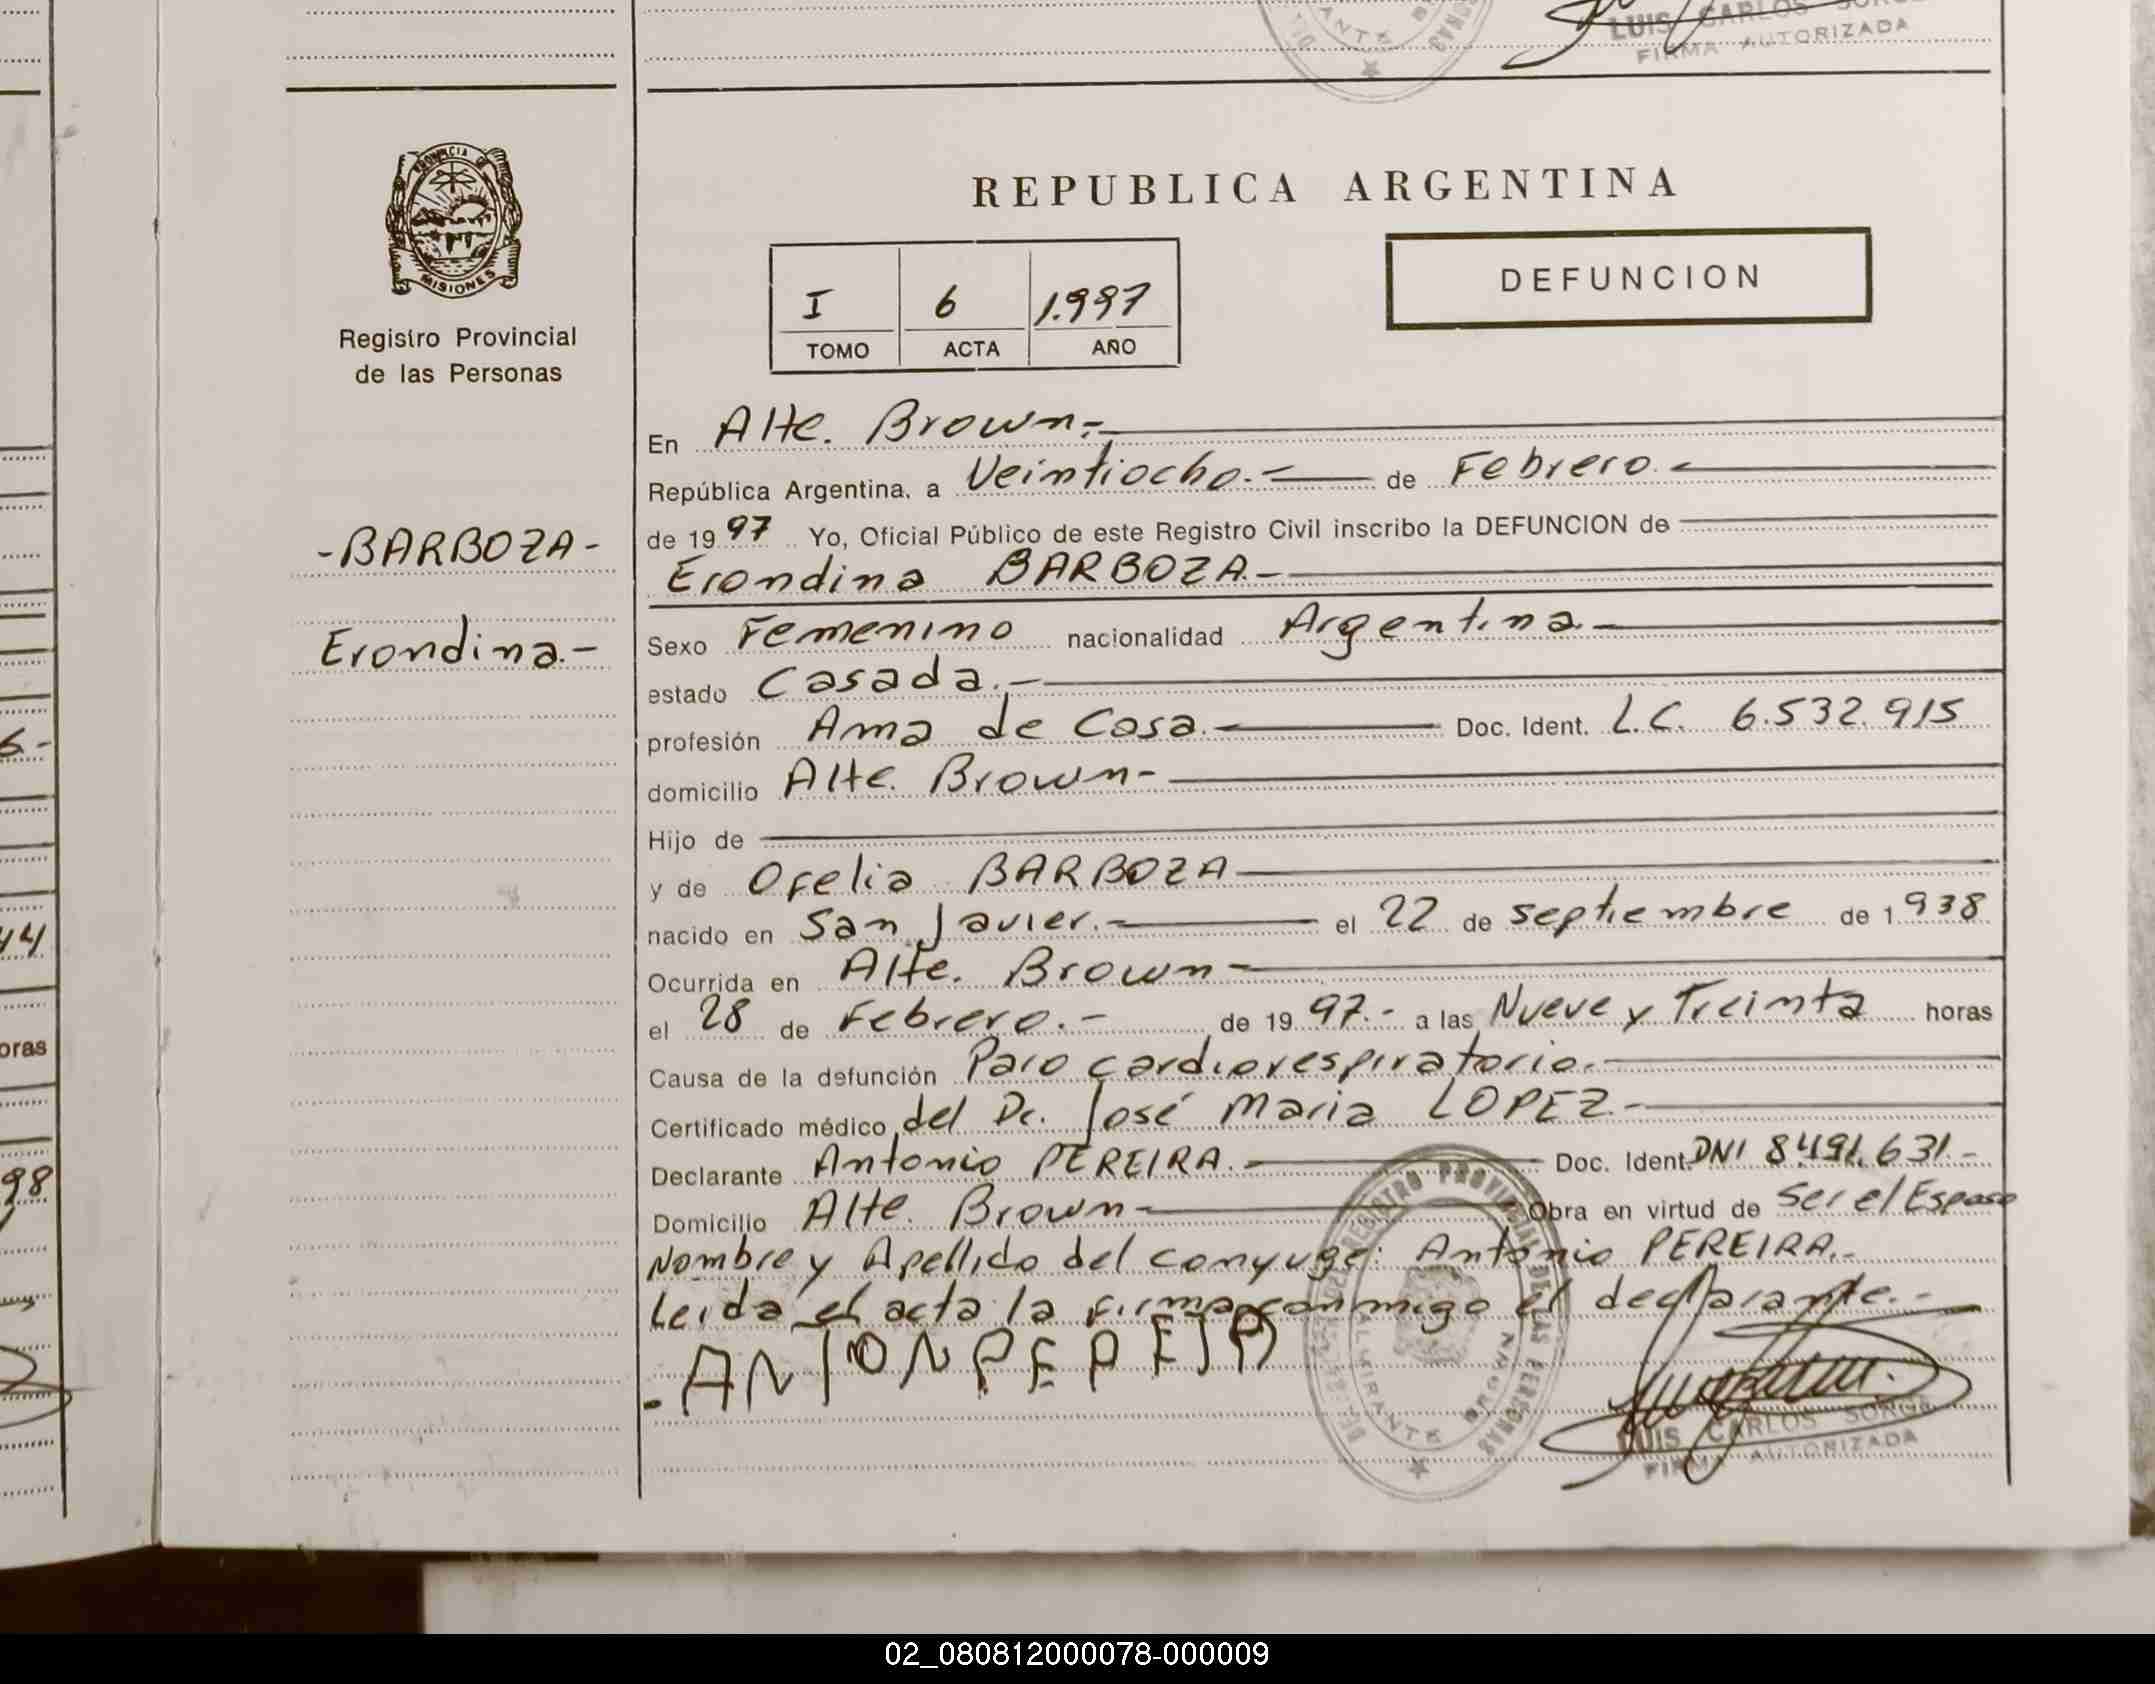 LUIS CARLOS SORGE
FIRMA AUTORIZADA
PROVINCIA DE
MISIONES
Registro Provincial
de las Personas
REPUBLICA ARGENTINA
DEFUNCION
I 6 1.997
TOMO ACTA AÑO
-BARBOZA-
Erondina.-
En Alte. Brown.-
República Argentina, a Veintiocho.- de Febrero.-
de 1997 Yo, Oficial Público de este Registro Civil inscribo la DEFUNCION de
Erondina BARBOZA.-
Sexo Femenino nacionalidad Argentina.-
estado Casada.-
profesión Ama de Casa.- Doc. Ident. L.C. 6.532.915
domicilio Alte. Brown-
Hijo de
y de Ofelia BARBOZA
nacido en San Javier.- el 22 de septiembre de 1.938
Ocurrida en Alte. Brown-
el 28 de Febrero.- de 1997.- a las Nueve y Treinta horas
Causa de la defunción Paro cardiorespiratorio.-
Certificado médico del Dr. José Maria LOPEZ.-
Declarante Antonio PEREIRA.- Doc. Ident. DNI 8.491.631.-
Domicilio Alte. Brown- Obra en virtud de Ser el Esposo
Nombre y Apellido del conyuge: Antonio PEREIRA.-
Leida el acta la firma conmigo el declarante.-
-ANTONPEPEIR
REGISTRO PROVINCIAL DE LAS PERSONAS
ALMIRANTE BROWN
LUIS CARLOS SORGE
FIRMA AUTORIZADA
6.-
44
oras
98
02_080812000078-000009